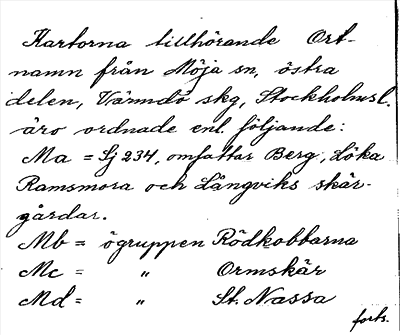 Kartorna tillhörande Ort-
namn från Möja sn, östra
delen, Värmdö skg, Stockholmsl.
äro ordnade enl. följande:
Ma = Lj 234, omfattar Berg, Löka
Ramsmora och Långviks skär-
gårdar.
Mb = ögruppen Rödkobbarna
Mc = " Ormskär
Md = " St. Nassa
forts.